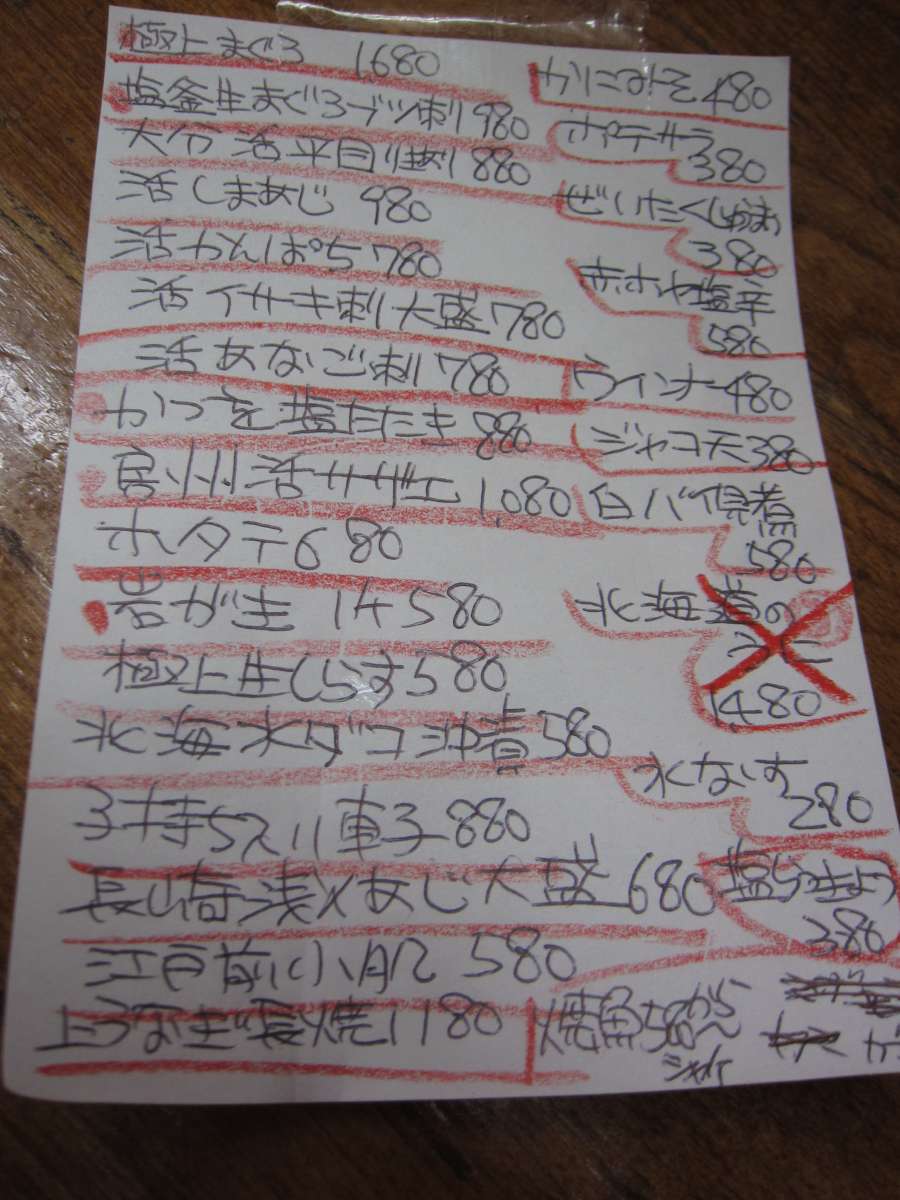 極上まぐろ 1680
塩釜生まぐろブツ刺 980
大分活平目(しお) 880
活しまあじ 980
活かんぱち 780
活イサキ刺大盛 780
活あなご刺 780
かつを塩たたき 880
房州活サザエ 1,080
ホタテ 680
岩がき 1ケ 580
極上生しらす 580
北海水ダコ沖漬 580
子持ち 880
長崎浅〆あじ大盛 680
江戸前小肌 580
上うなぎ長焼 1180
かにみそ 480
ポテサラ
380
ぜいたく
380
赤ホヤ塩辛
580
ウインナー 480
ジャコ天 380
白バイ貝煮
580
北海道の
うに
1,480
水なす
280
塩らっきょう
380
焼魚 580から
シャケ